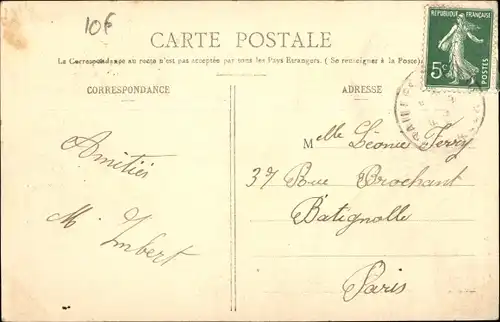 10f
CARTE POSTALE
REPUBLIQUE FRANÇAISE
5c
POSTES
La Correspondance au recto n'est pas acceptée par tous les Pays Etrangers. (Se renseigner à la Poste)
CORRESPONDANCE
ADRESSE
Amitiés
M. Imbert
Melle Léonie Ferry
37 Rue Brochant
Batignolle
Paris